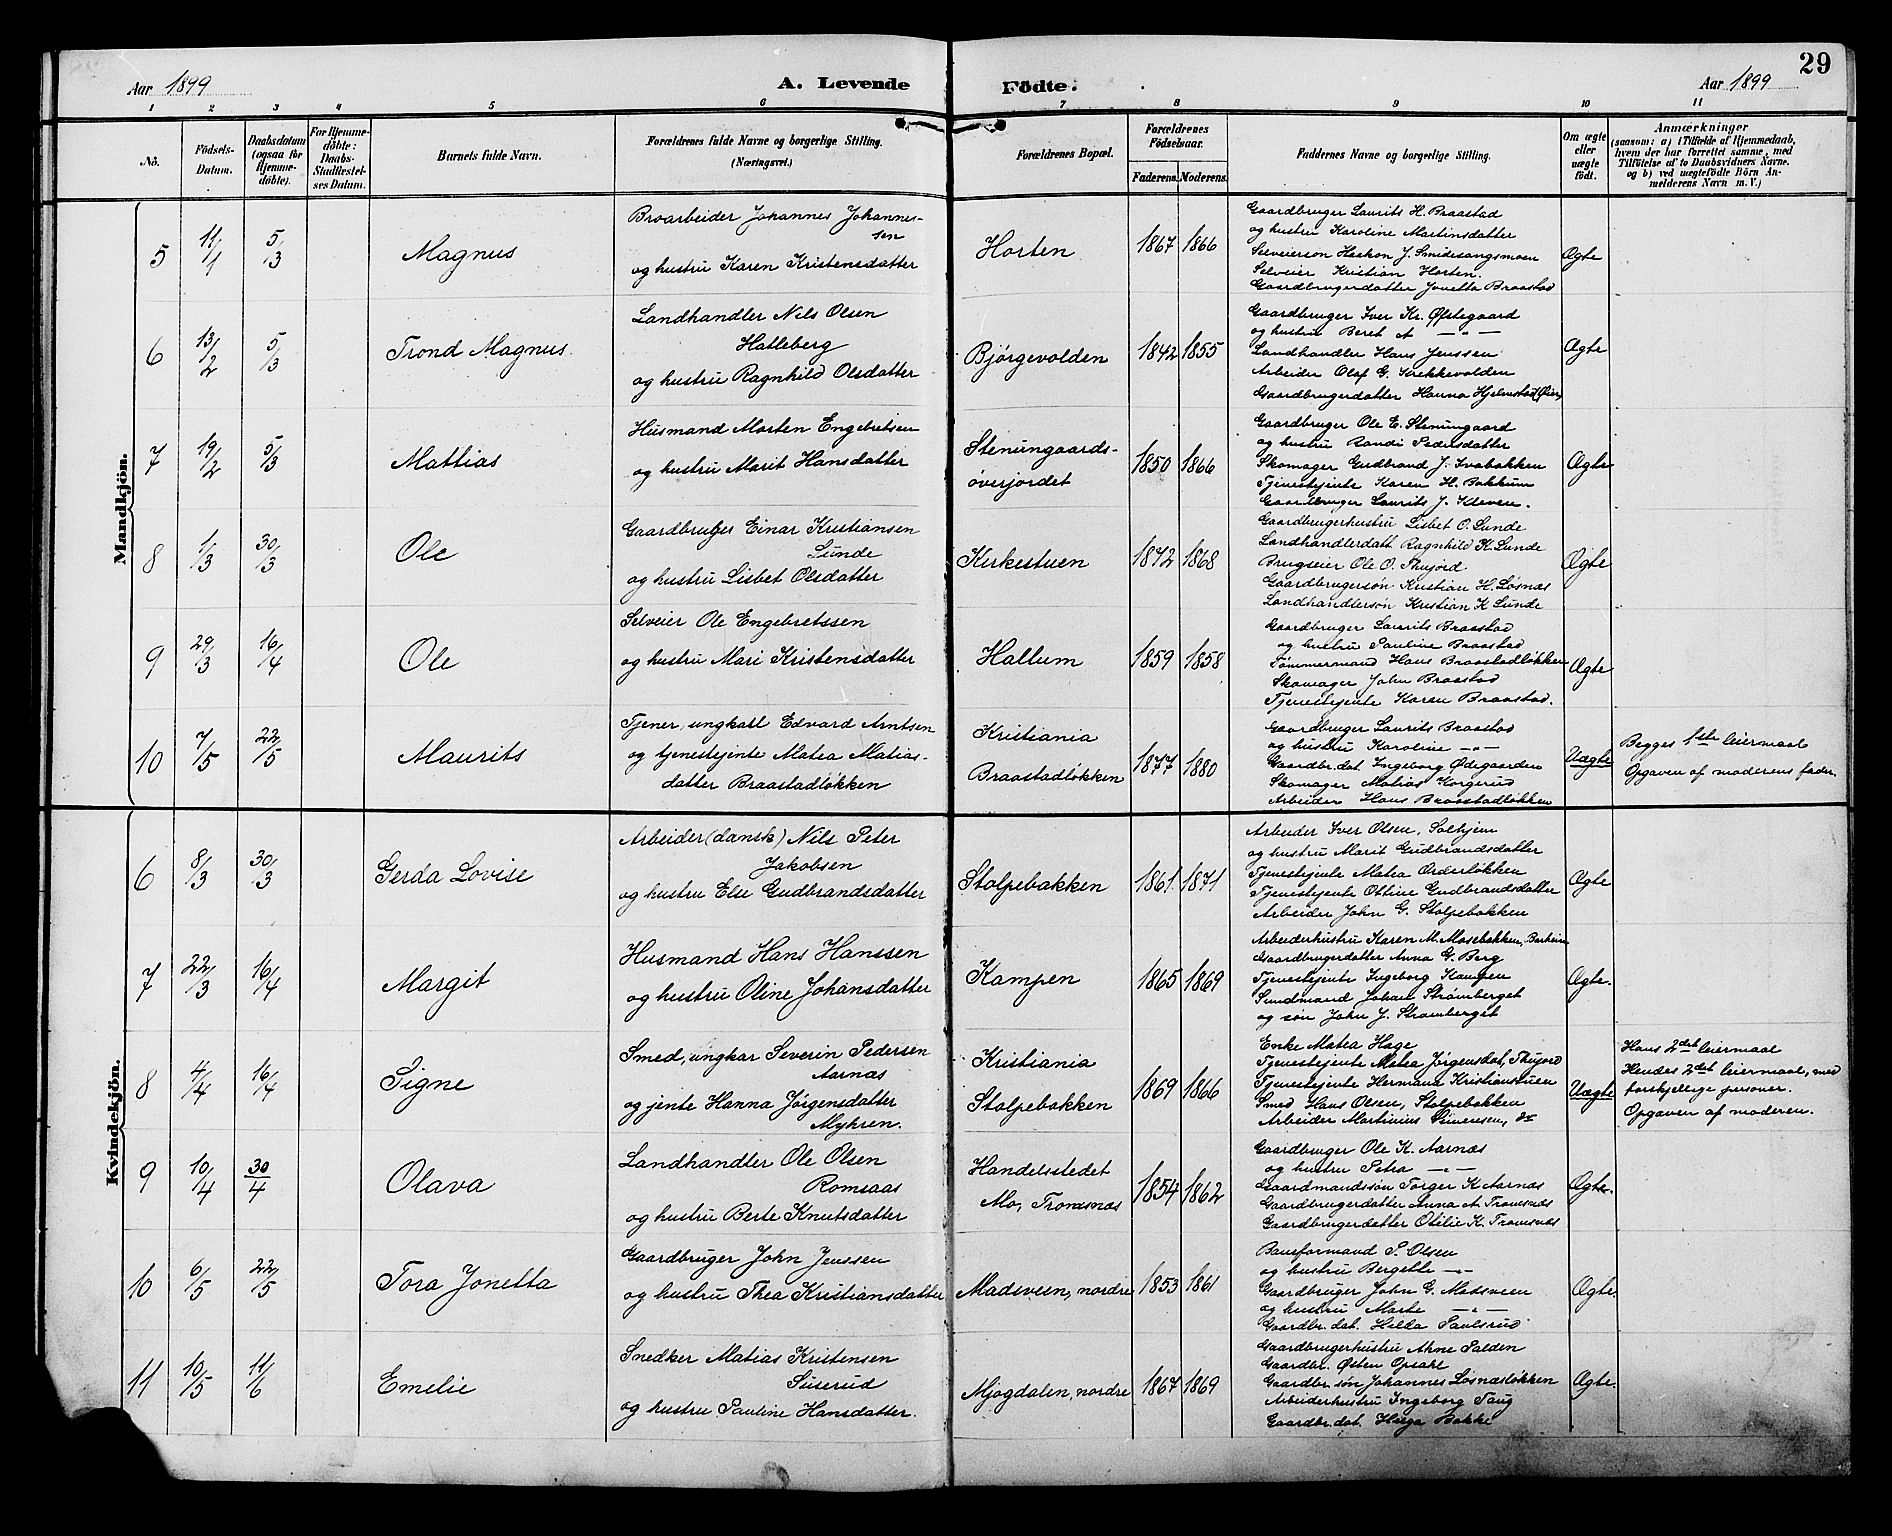 29
Aar 1899
A. Levende
Födte.
Aar 1899
1 2 3 4 5 6 7 8 9 10 11
No.
Födsels-
Datum.
Daabsdatum
(ogsaa for
Hjemme-
döbte).
For Hjemme-
döbte:
Daabs-
Stadfæstel-
ses Datum.
Barnets fulde Navn.
Forældrenes fulde Navne og borgerlige Stilling.
(Næringsvei.)
Forældrenes Bopæl.
Forældrenes
Födselsaar.
Faderens. Moderens.
Faddernes Navne og borgerlige Stilling.
Om ægte
eller
uægte
født.
Anmærkninger
(saasom: a) i Tilfælde af Hjemmedaab,
hvem der har forrettet samme, med
Tilföielse af to Daabsvidners Navne.
og b) ved uægtefödte Börn An-
melderens Navn m. V.)
Mandkjön.
5
11/1
5/3
Magnus
Broarbeider Johannes Johannes-
sen
og hustru Karen Kristensdatter
Horten
1867 1866
Gaardbruger Laurits H. Braastad
og hustru Karoline Martinsdatter
Selveiersön Haakon J. Smidesangsmoen
Selveier Kristian Horten.
Gaardbrugerdatter Jonetta Braastad
Ægte
6
13/2
5/3
Trond Magnus.
Landhandler Nils Olsen
Hatleberg
og hustru Ragnhild Olsdatter
Bjørgevolden
1842 1855
Gaardbruger Iver Kr. Øfstegaard
og hustru Beret A — " —
Landhandler Hans Jenssen
Arbeider Olaf G. Krekkevolden
Gaardbrugerdatter Hanna Hjelmstad, Øier,
Ægte
7
19/2
5/3
Mattias
Husmand Morten Engebretsen
og hustru Marit Hansdatter
Stenungaards-
överjordet
1850 1866
Gaardbruger Ole E. Stenungaard
og hustru Randi Pedersdatter
Skomager Gudbrand J. Ivabakken
Tjenestejente Karen H. Bakkum
Gaardbruger Laurits J. Kleven.
Ægte
8
1/3
30/3
Ole
Gaardbruger Einar Kristiansen
Sunde
og hustru Lisbet Olsdatter
Kirkestuen
1842 1868
Gaardbrugerhustru Lisbet O. Sunde
Landhandlerdatt Ragnhild K. Sunde
Brugseier Ole O. Thujord
Gaardbrugersön Kristian H. Løsnæs
Landhandlersön Kristian K Sunde
Ægte
9
29/3
16/4
Ole
Selveier Ole Engebretssen
og hustru Mari Kristensdatter
Hallum
1859 1858
Gaardbruger Laurits Braastad
og hustru Pauline Braastad
Tømmermand Hans Braastadløkken
Skomager John Braastad
Tjenestejente Karen Braastad.
Ægte
10
7/5
22/5
Maurits
Tjener, ungkarl Edvard Arntsen
og tjenestejente Matea Matias-
datter Braastadløkken
Kristiania
Braastadløkken
1877 1880
Gaardbruger Laurits Braastad
og hustru Karoline — " —
Gaardbr.dat. Ingeborg Ødegaarden
Skomager Matias Korgerud
Arbeider Hans Braastadløkken
Uægte
Begges 1ste leiermaal
Opgaven af moderens fader.
Kvindekjön.
6
8/3
30/3
Gerda Lovise
Arbeider (dansk) Nils Peter
Jakobsen
og hustru Else Gudbrandsdatter
Stolpebakken
1861 1871
Arbeider Iver Olsen, Solhjem
og hustru Marit Gudbrandsdatter
Tjenestejente Matea Orderløkken
Tjenestejente Ottine Gudbrandsdatter
Arbeider John G. Stolpebakken
Ægte
7
22/3
16/4
Margit
Husmand Hans Hanssen
og hustru Oline Johansdatter
Kampen
1865 1869
Arbeiderhustru Karen M. Mosebakken,
Gaardbrugerdatter Anna G. Berg
Tjenestejente Ingeborg Kampen
Johan Strömberget
og sön John J. Strömberget
Ægte.
8
4/4
16/4
Signe
Smed, ungkar Severin Pedersen
Aarnæs
og jente Hanna Jörgensdatter
Myhren.
Kristiania
Stolpebakken
1869 1866
Enke Matea Hage
Tjenestejente Matea Jörgensdat, Thujord
Tjenestejente Hermana Kristianstuen
Smed Hans Olsen, Stolpebakken
Arbeider Martinius Simensen, do
Uægte
Hans 2det leiermaal
Hendes 2det leiermaal, med
forskjellige personer.
Opgaven af moderen.
9
10/4
30/4
Olava
Landhandler Ole Olsen
Romsaas
og hustru Berte Knutsdatter
Handelsstedet
Mo, Tromsnæs
1854 1862
Gaardbruger Ole K. Aarnæs
og hustru Petra — " —
Gaardmandssön Torger K Aarnæs
Gaardbrugerdatter Anna A Tromsnæs
Gaardbrugerdatter Otilie K. Tromsnæs
Ægte.
10
6/5
22/5
Tora Jonetta
Gaardbruger John Jenssen
og hustru Thea Kristiansdatter
Madsveen, nordre
1853 1861
Baneformand P. Olsen
og hustru Bergette — " —
Gaardbruger John G. Madsveen
og hustru Marte — " —
Gaardbr. dat. Hilda Paulsrud
Ægte.
11
10/5
11/6
Emelie
Snedker Matias Kristensen
Suserud
og hustru Pauline Hansdatter.
Mjogdalen, nordre
1867 1869
Gaardbrugerhustru Ahne Salden
Gaardbr. Østen Opsahl
Gaardbr. sön Johannes Løsnæsløkken
Arbeiderhustru Ingeborg Taug
Gaardbr. dat. Helga Bakke
Ægte.